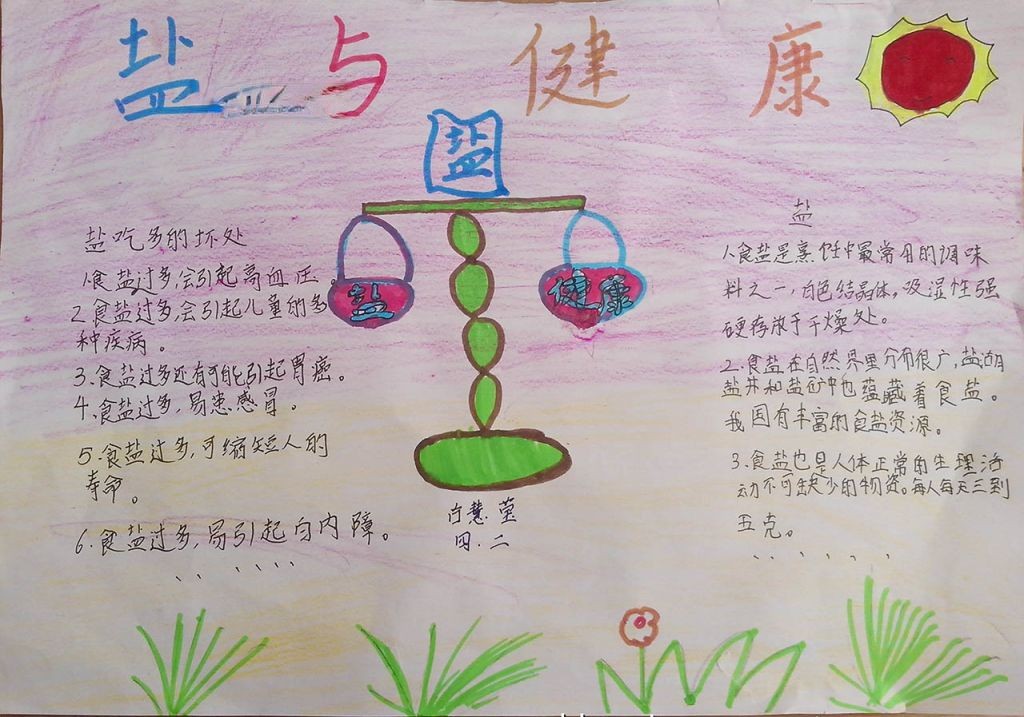 盐与健康
盐
盐
健康
盐吃多的坏处
1.食盐过多,会引起高血压。
2.食盐过多,会引起儿童的多
种疾病。
3.食盐过多还有可能引起胃癌。
4.食盐过多,易患感冒。
5.食盐过多,可缩短人的
寿命。
6.食盐过多,易引起白内障。
、、、、、、
白慧莹
四.二
盐
1.食盐是烹饪中最常用的调味
料之一,白色结晶体,吸湿性强
硬存放于干燥处。
2.食盐在自然界里分布很广,盐湖
盐井和盐矿中也蕴藏着食盐。
我国有丰富的食盐资源。
3.食盐也是人体正常的生理活
动不可缺少的物资。每人每天三到
五克。
、、、、、、